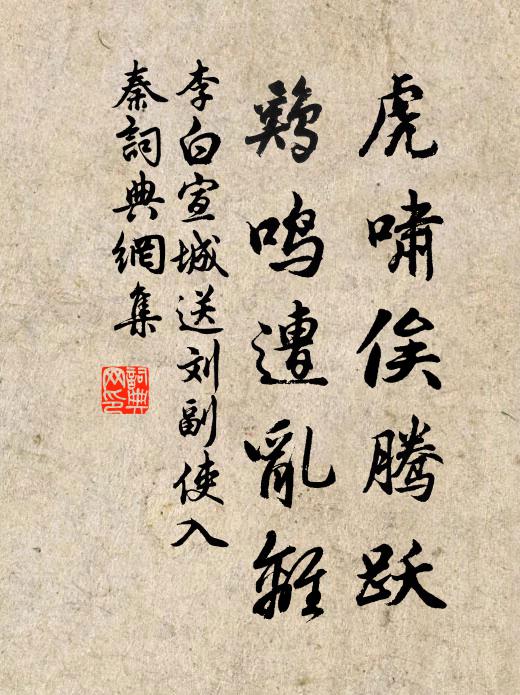 虎啸俟腾跃
鷄鳴遭亂離
李白宣城送刘副使入
秦詞典網集
詞典
网印